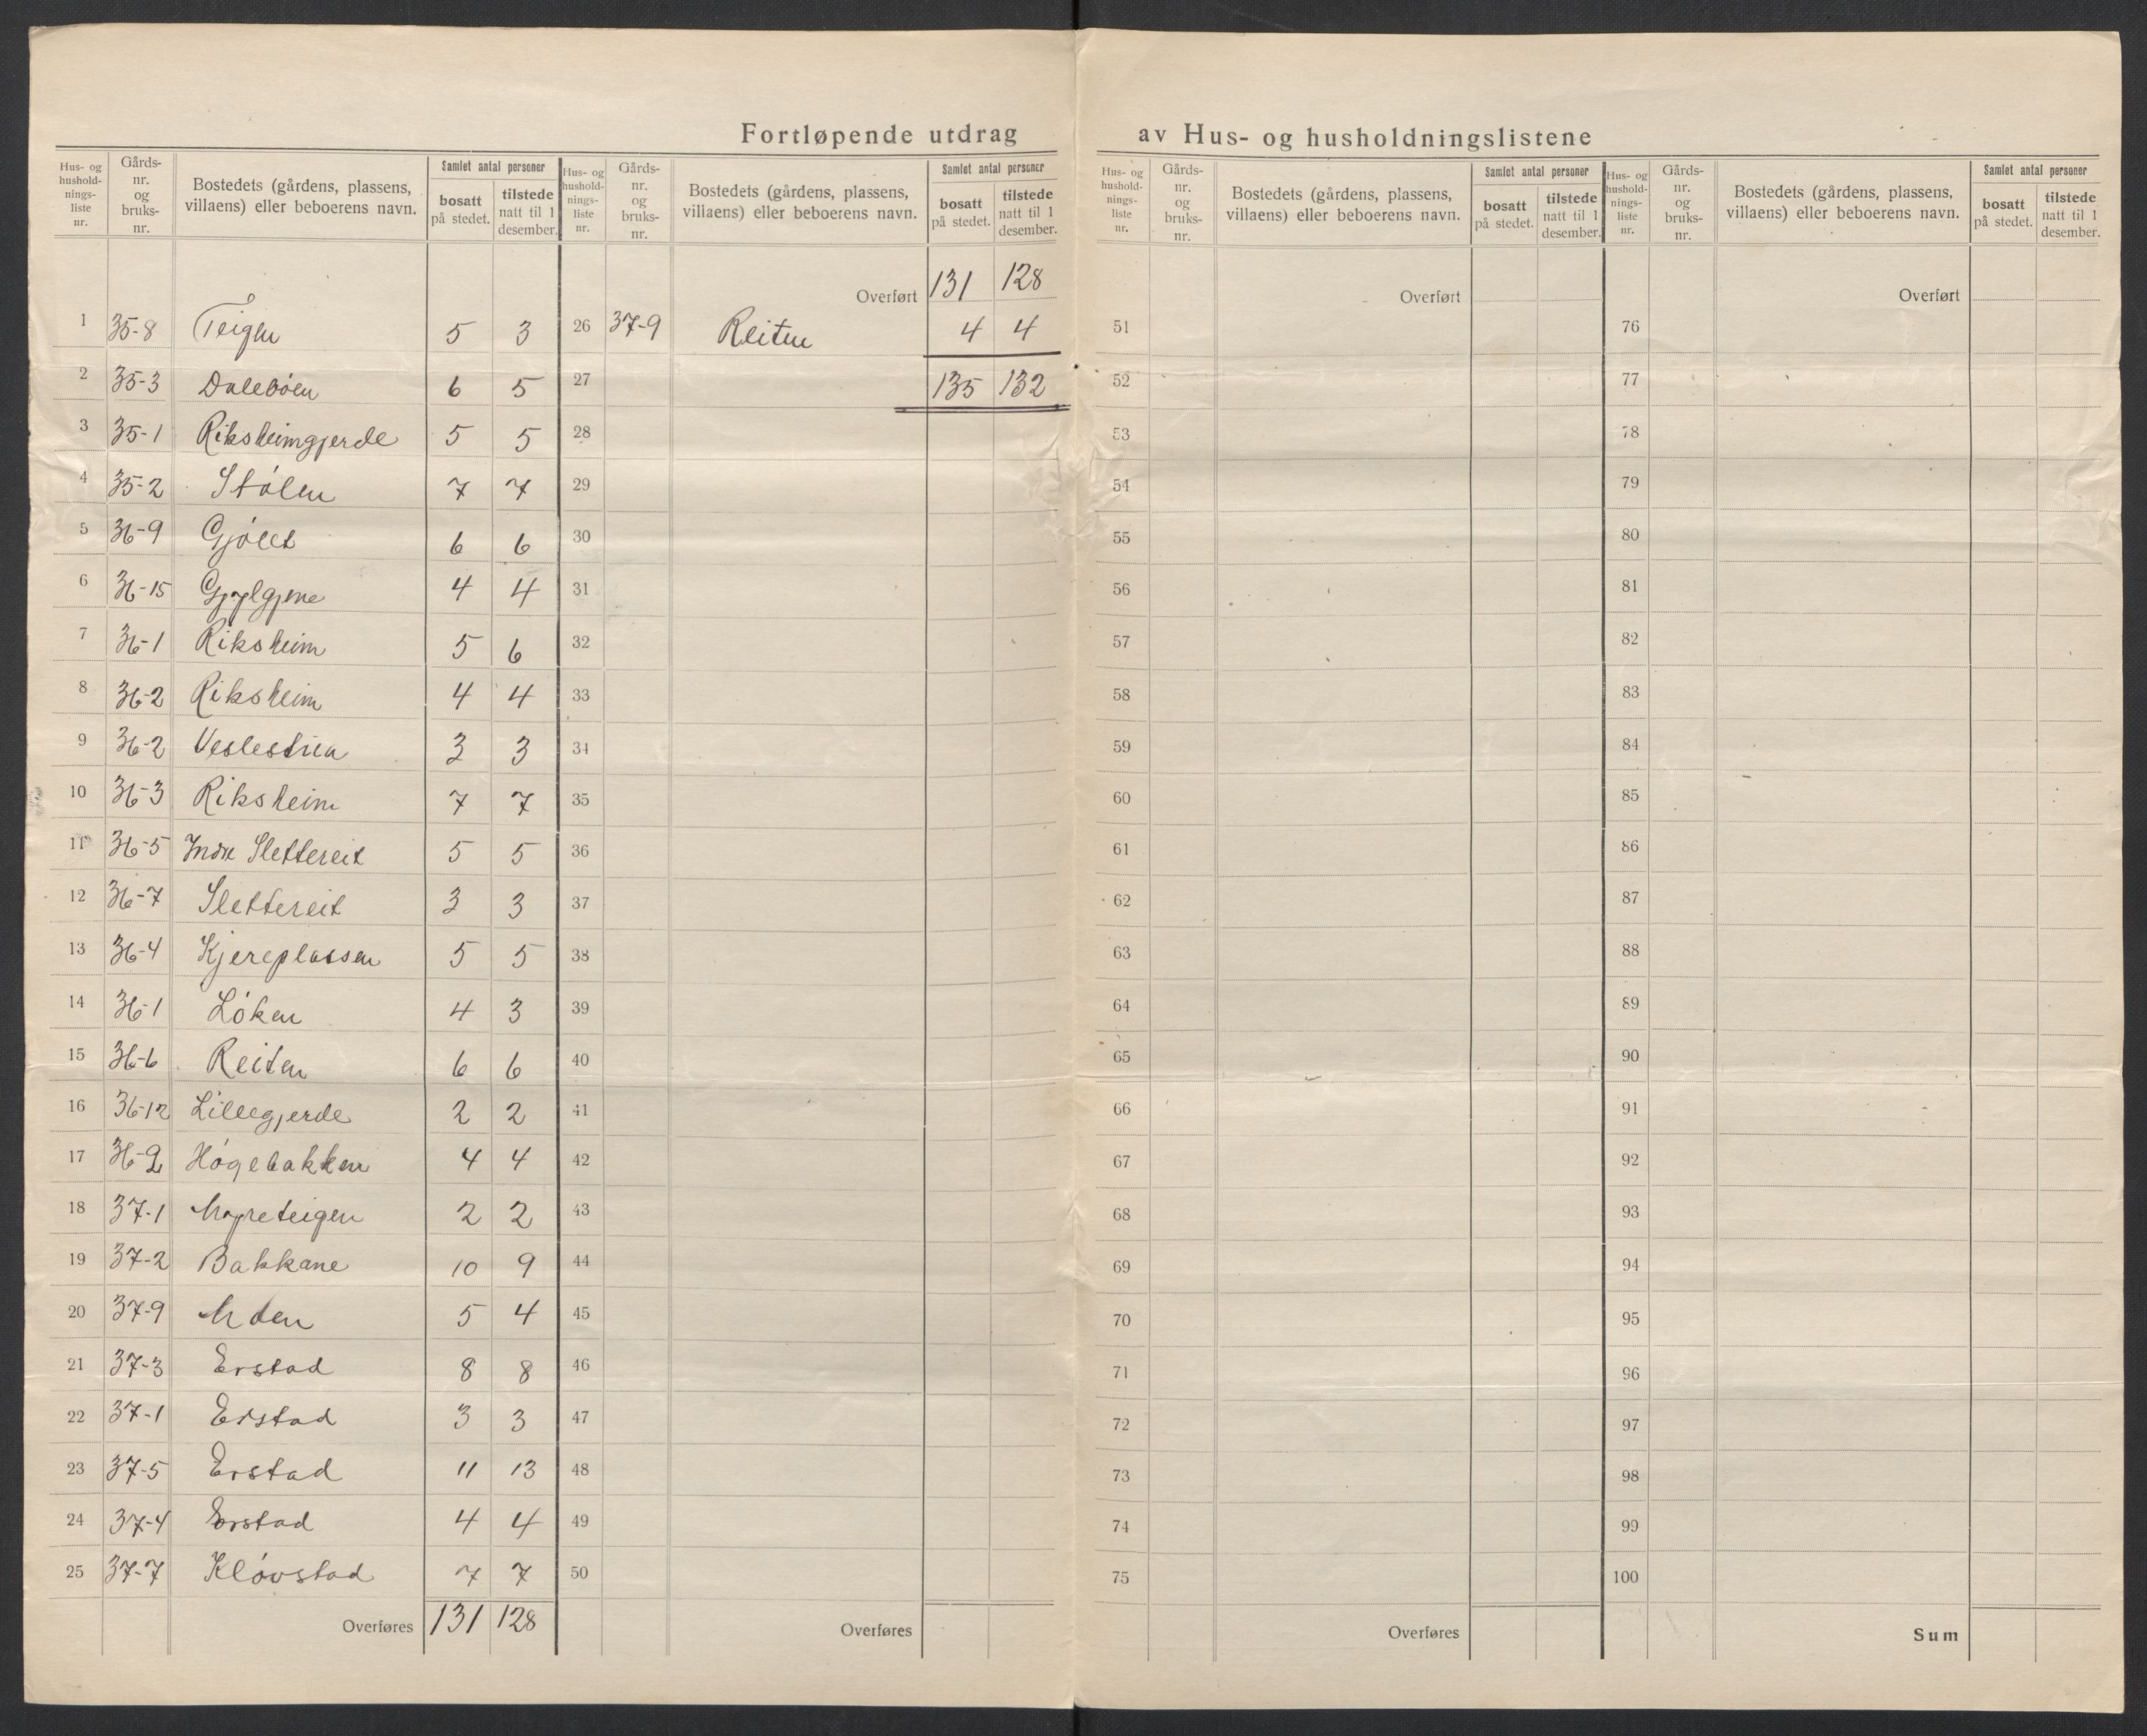 Fortløpende utdrag av Hus- og husholdningslistene
Hus- og hushold-nings-liste nr. Gårds-nr. og bruks-nr. Bostedets (gårdens, plassens, villaens) eller beboerens navn. Samlet antal personer bosatt på stedet. tilstede natt til 1 desember.
Hus- og hushold-nings-liste nr. Gårds-nr. og bruks-nr. Bostedets (gårdens, plassens, villaens) eller beboerens navn. Samlet antal personer bosatt på stedet. tilstede natt til 1 desember.
Hus- og hushold-nings-liste nr. Gårds-nr. og bruks-nr. Bostedets (gårdens, plassens, villaens) eller beboerens navn. Samlet antal personer bosatt på stedet. tilstede natt til 1 desember.
Hus- og hushold-nings-liste nr. Gårds-nr. og bruks-nr. Bostedets (gårdens, plassens, villaens) eller beboerens navn. Samlet antal personer bosatt på stedet. tilstede natt til 1 desember.
1 35-8 Teigen 5 3
2 35-3 Dalebøen 6 5
3 35-1 Riksheimgjerde 5 5
4 35-2 Stølen 7 7
5 36-9 Gjølet 6 6
6 36-15 4 4
7 36-1 Riksheim 5 6
8 36-2 Riksheim 4 4
9 36-2 3 3
10 36-3 Riksheim 7 7
11 36-5 Indre Slettereit 5 5
12 36-7 Slettereit 3 3
13 36-4 Kjereplassen 5 5
14 36-1 Løken 4 3
15 36-6 Reiten 6 6
16 36-12 Lillegjerde 2 2
17 36-2 Høgebakken 4 4
18 37-1 Møreteigen 2 2
19 37-2 Bakkane 10 9
20 37-9 5 4
21 37-3 Erstad 8 8
22 37-1 Erstad 3 3
23 37-5 Erstad 11 13
24 37-4 Erstad 4 4
25 37-7 Kløvstad 7 7
Overføres 131 128
Overført 131 128
26 37-9 Reiten 4 4
27 135 132
28
29
30
31
32
33
34
35
36
37
38
39
40
41
42
43
44
45
46
47
48
49
50
Overføres
Overført
51
52
53
54
55
56
57
58
59
60
61
62
63
64
65
66
67
68
69
70
71
72
73
74
75
Overføres
Overført
76
77
78
79
80
81
82
83
84
85
86
87
88
89
90
91
92
93
94
95
96
97
98
99
100
Sum